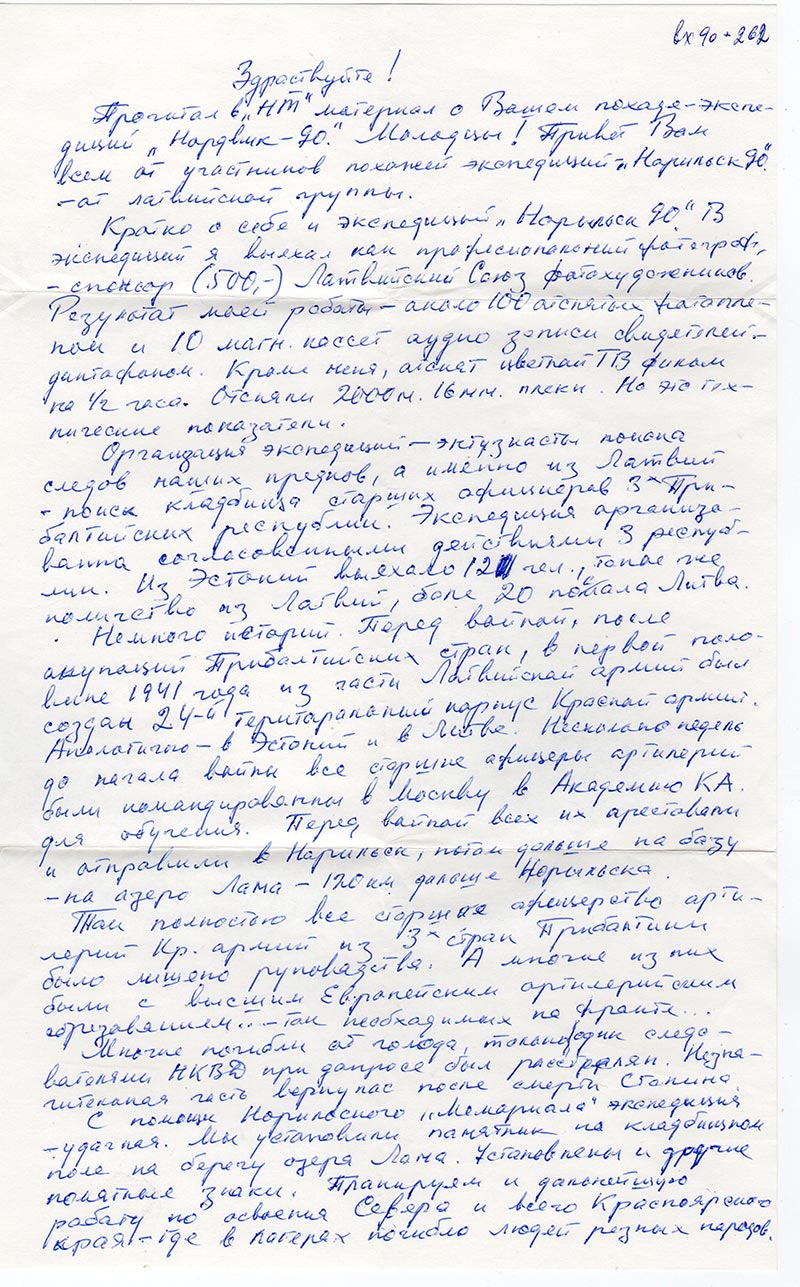 вх 90-262
Здраствуйте!
Прочитал в „НТ“ материал о Вашем походе-экспе-
диций „Нордвик-90.“ Молодцы! Привет Вам
всем от участников похожей экспедиций „Норильск 90“.
-от латвийской группы.
Кратко о себе и экспедиций „Норильск 90.“ В
экспедиций я выехал как професиональний фотограф,
- спонсор (500,-) Латвийский Союз фотохудожников.
Результат моей работы - около 100 отснятых фотопле-
нок и 10 магн. кассет аудио записи свидетелей-
диктафоном. Кроме меня, отснят цветной ТВ фильм
на 1/2 часа. Отсняли 2000м. 16мм. пленки. Но это тех-
нические показатели.
Организация экспедиций - энтузиасты поиска
следов наших предков, а именно из Латвий
- поиск кладбища старших офицеров 3х При-
балтийских республик. Экспедиция организо-
ванна согласованными действиями 3 респуб-
лик. Из Эстоний выехало 12 чел., такое же
количство из Латвий, боле 20 послала Литва.
Немного историй. Перед войной, после
окупаций Прибалтийских стран, в первой поло-
вине 1941 года из части Латвийской армий был
создан 24-й територальный корпус Красной армий.
Аналогично - в Эстоний и в Литве. Несколько недель
до начала войны все старшие офицеры артилерий
были командированны в Москву в Академию КА.
для обучения. Перед войной всех их арестовали
и отправили в Норильск, потом дальше на базу
- на озеро Лама - 120 км дальше Норыльска.
Так полностью все старшие офицерство арти-
лерий Кр. армий из 3х стран Прибалтики
было лишено руководства. А многие из них
были с высшим Европейским артилерийским
образованием... - так необходимых на фронте...
Многие погибли от голода, только один следо-
вателями НКВД при допросе был расстрелян. Незна-
чительная часть вернулас после смерти Сталина.
С помощи Норильского „Мемориала“ экспедиция
- удачная. Мы установили памятник на кладбищном
поле на берегу озера Лама. Установлены и другие
памятные знаки. Планируем и дальнейшую
работу по освоения Севера и всего Красноярского
края - где в лагерях погибло людей разных народов.